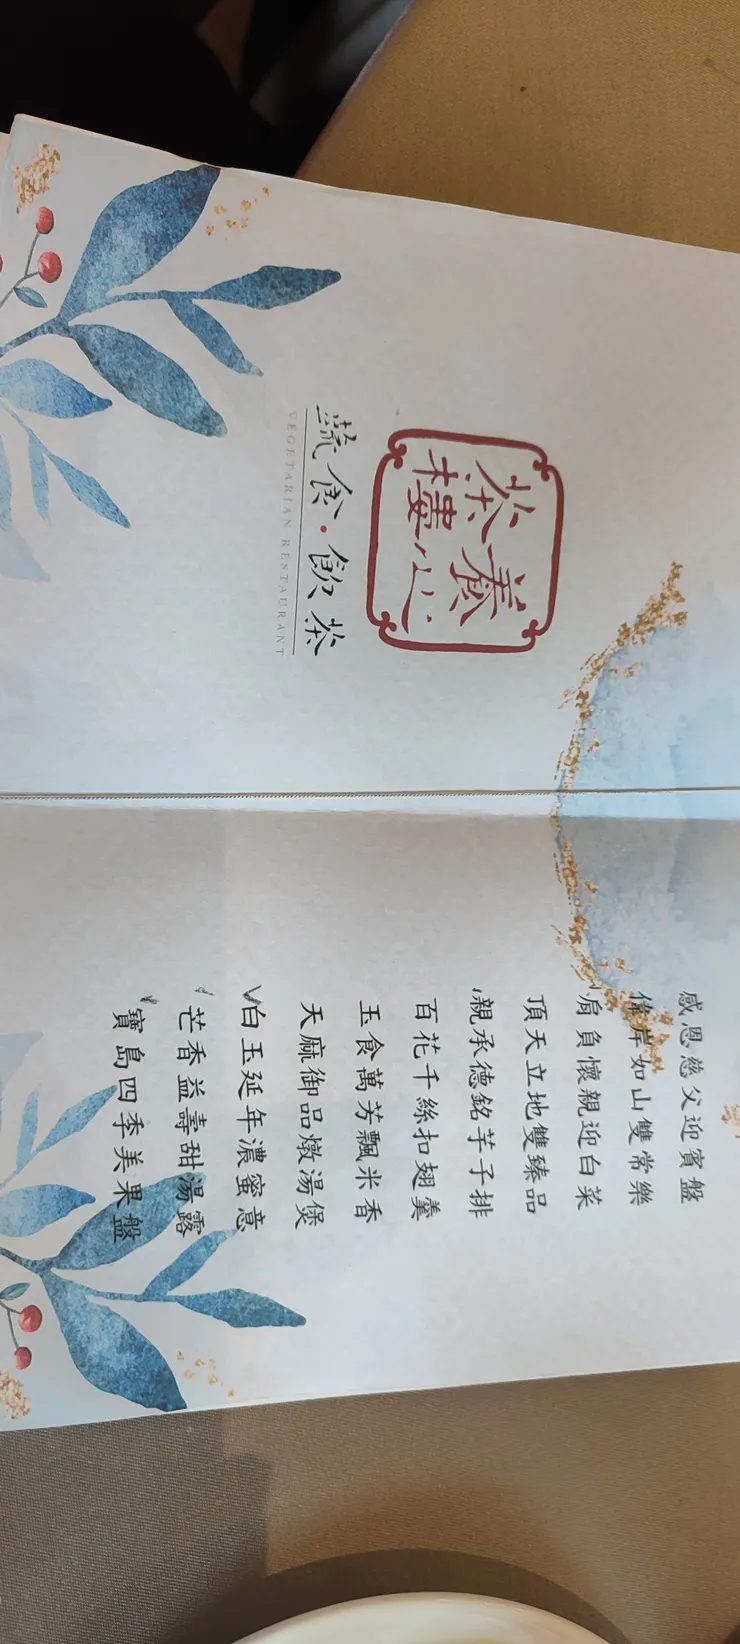 養心
茶樓
蔬食·飲茶
VEGETARIAN RESTAURANT
感恩慈父迎賓盤
偉岸如山雙常樂
肩負懷親迎白菜
頂天立地雙臻品
親承德銘芋子排
百花千絲扣翅羹
玉食萬芳飄米香
天麻御品燉湯煲
白玉延年濃蜜意
芒香益壽甜湯露
寶島四季美果盤